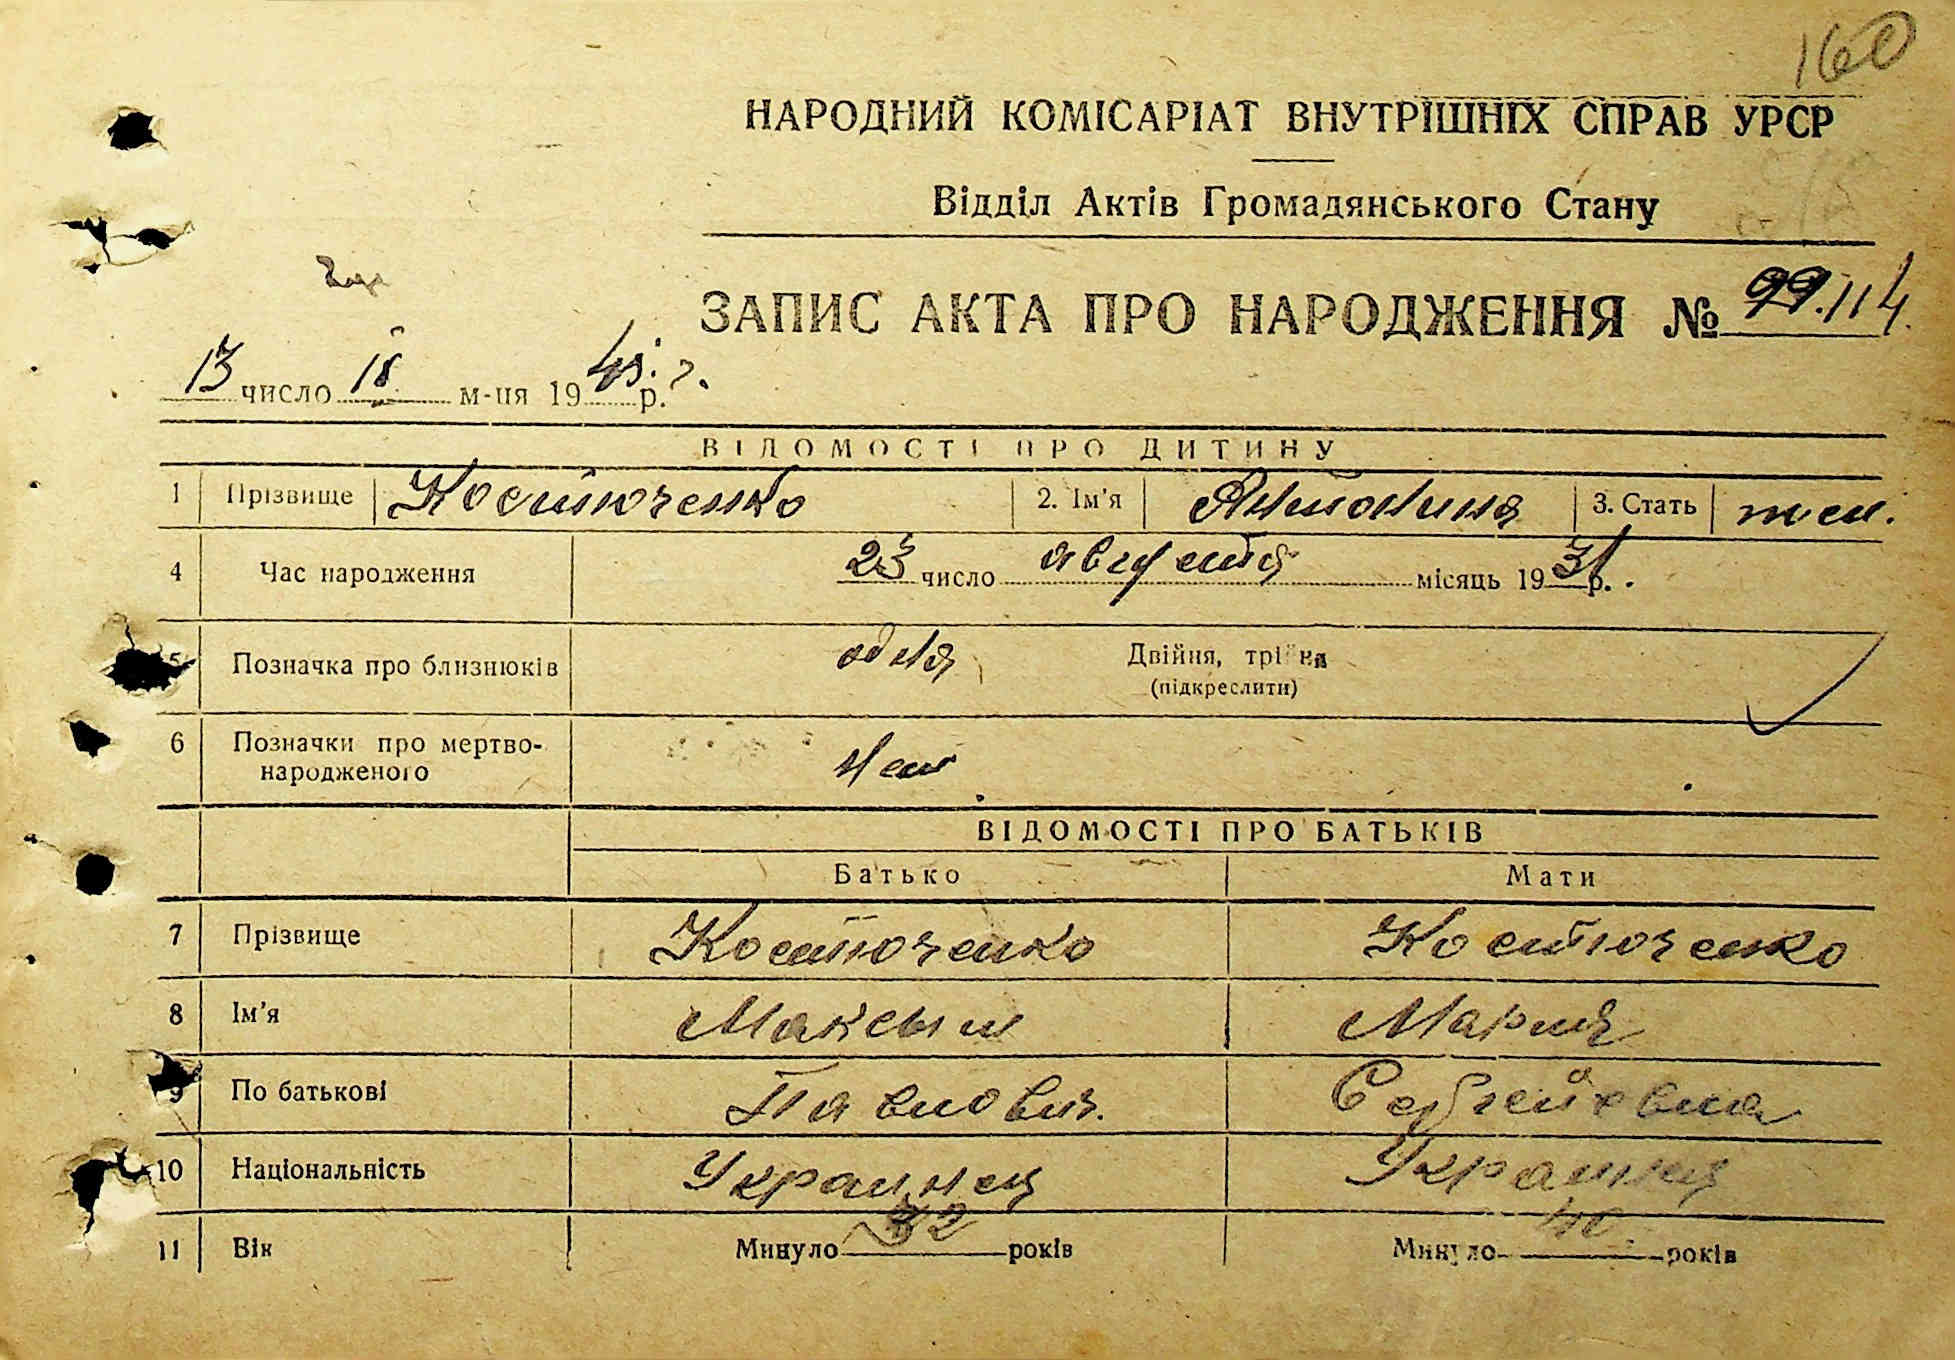 160
НАРОДНИЙ КОМІСАРІАТ ВНУТРІШНІХ СПРАВ УРСР
Відділ Актів Громадянського Стану
ЗАПИС АКТА ПРО НАРОДЖЕННЯ № 99. 114.
13 число м-ця 1943. р.
ВІДОМОСТІ ПРО ДИТИНУ
1 Прізвище Костюченко 2. Ім'я Антонина 3. Стать жен.
4 Час народження 23 число августа місяць 1931 р.
5 Позначка про близнюків одна Двійня, трійня
(підкреслити)
6 Позначки про мертво-
народженого нет
ВІДОМОСТІ ПРО БАТЬКІВ
Батько Мати
7 Прізвище Костюченко Костюченко
8 Ім'я Максым Мария
9 По батькові Павлович. Сергеевна
10 Національність Украинец Украинка
11 Вік Минуло 42 років Минуло 40 років